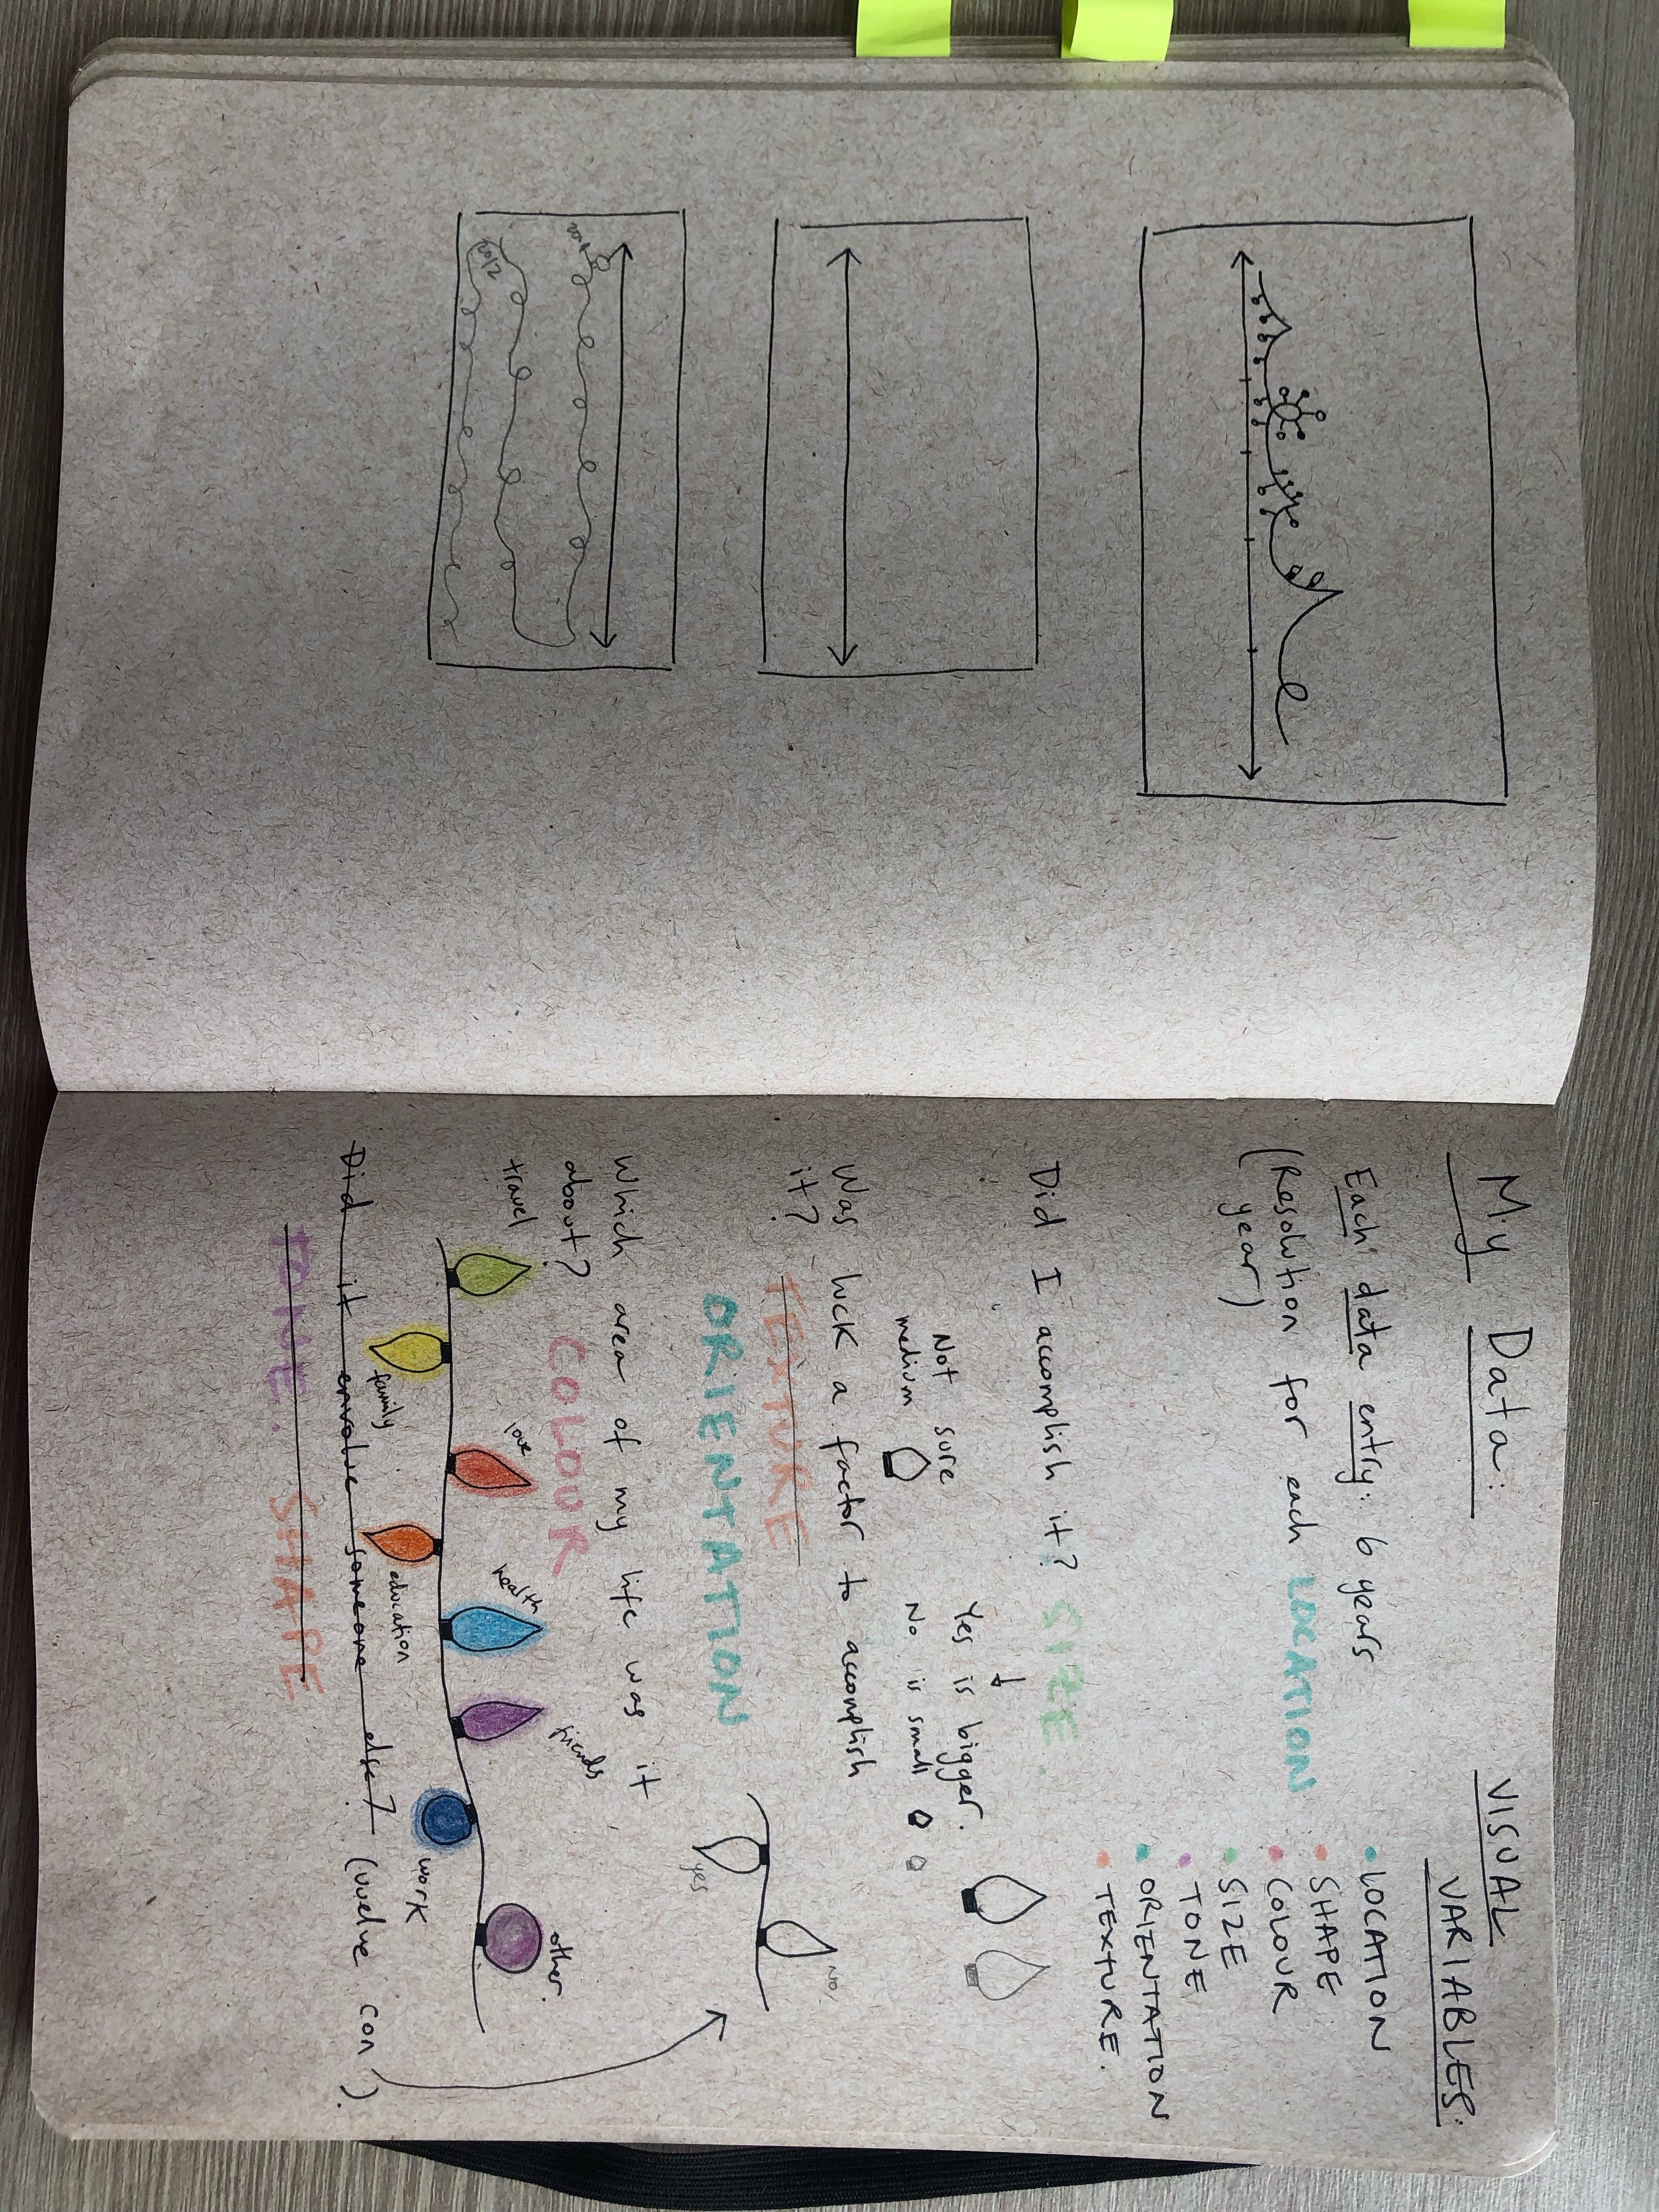 My Data:
Each data entry: 6 years
(Resolution for each LOCATION
year)
Did I accomplish it? SIZE.
Not sure
medium
Yes is bigger.
No is small
Was luck a factor to accomplish
it? TEXTURE
ORIENTATION
yes
No.
Which area of my life was it
about? COLOUR
travel
family
love
education
health
friends
work
other.
Did it envolve someone else? (vuelve con)
TONE. SHAPE
VISUAL
VARIABLES:
• LOCATION
• SHAPE
• COLOUR
• SIZE
• TONE
• ORIENTATION
• TEXTURE.